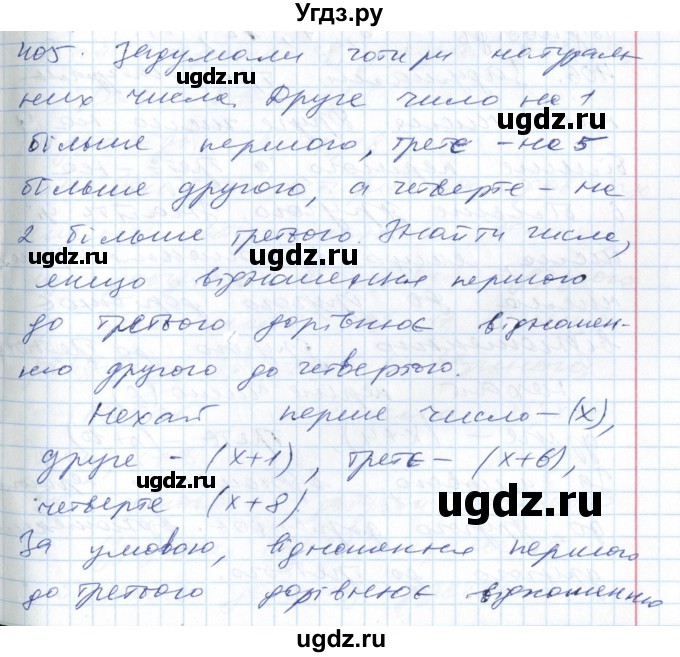 Угдз.ру
405. Задумали чотири натураль-
них числа. Друге число на 1
більше першого, третє – на 5
більше другого, а четверте – на
2 більше третього. Знайти числа,
якщо відношення першого
до третього дорівнює відношен-
ню другого до четвертого.
Нехай перше число – (x),
друге – (x+1), третє – (x+6),
четверте (x+8).
За умовою, відношення першого
до третього дорівнює відношенню
ugdz.ru
ugdz.ru
ugdz.ru
ugdz.ru
ugdz.ru
ugdz.ru
ugdz.ru
ugdz.ru
ugdz.ru
ugdz.ru
ugdz.ru